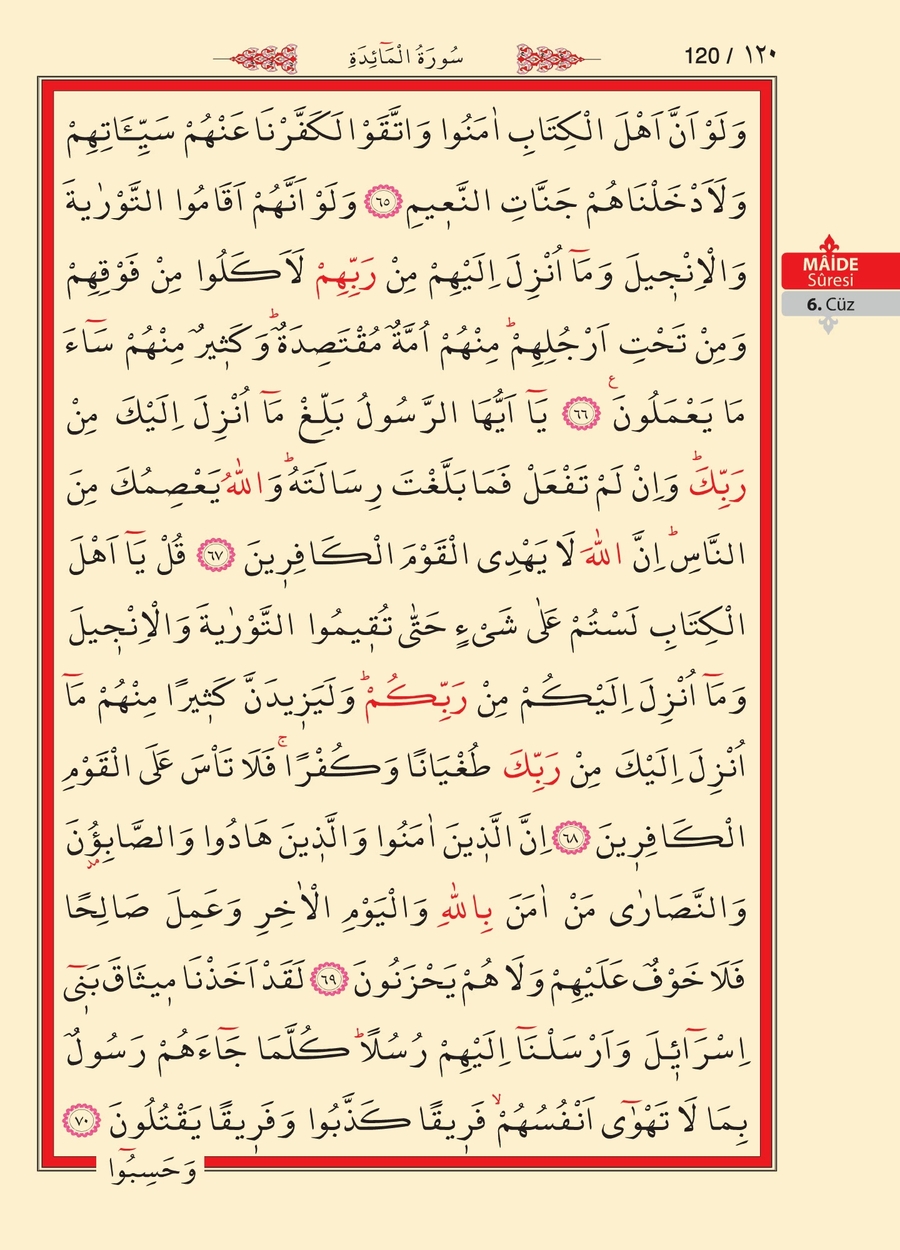 سُورَةُ الْمَٓائِدَةِ
120 / ١٢٠
وَلَوْ اَنَّ اَهْلَ الْكِتَابِ اٰمَنُوا وَاتَّقَوْا لَكَفَّرْنَا عَنْهُمْ سَيِّـَٔاتِهِمْ
وَلَاَدْخَلْنَاهُمْ جَنَّاتِ النَّع۪يمِ ﴿٦٥﴾ وَلَوْ اَنَّهُمْ اَقَامُوا التَّوْرٰيةَ
وَالْاِنْج۪يلَ وَمَٓا اُنْزِلَ اِلَيْهِمْ مِنْ رَبِّهِمْ لَاَكَلُوا مِنْ فَوْقِهِمْ
وَمِنْ تَحْتِ اَرْجُلِهِمْۜ مِنْهُمْ اُمَّةٌ مُقْتَصِدَةٌۜ وَكَث۪يرٌ مِنْهُمْ سَٓاءَ
مَا يَعْمَلُونَ۟ ﴿٦٦﴾ يَٓا اَيُّهَا الرَّسُولُ بَلِّغْ مَٓا اُنْزِلَ اِلَيْكَ مِنْ
رَبِّكَۜ وَاِنْ لَمْ تَفْعَلْ فَمَا بَلَّغْتَ رِسَالَتَهُۜ وَاللّٰهُ يَعْصِمُكَ مِنَ
النَّاسِۜ اِنَّ اللّٰهَ لَا يَهْدِى الْقَوْمَ الْكَافِر۪ينَ ﴿٦٧﴾ قُلْ يَٓا اَهْلَ
الْكِتَابِ لَسْتُمْ عَلٰى شَىْءٍ حَتّٰى تُق۪يمُوا التَّوْرٰيةَ وَالْاِنْج۪يلَ
وَمَٓا اُنْزِلَ اِلَيْكُمْ مِنْ رَبِّكُمْۜ وَلَيَز۪يدَنَّ كَث۪يرًا مِنْهُمْ مَٓا
اُنْزِلَ اِلَيْكَ مِنْ رَبِّكَ طُغْيَانًا وَكُفْرًاۚ فَلَا تَاْسَ عَلَى الْقَوْمِ
الْكَافِر۪ينَ ﴿٦٨﴾ اِنَّ الَّذ۪ينَ اٰمَنُوا وَالَّذ۪ينَ هَادُوا وَالصَّابِؤُ۫نَ
وَالنَّصَارٰى مَنْ اٰمَنَ بِاللّٰهِ وَالْيَوْمِ الْاٰخِرِ وَعَمِلَ صَالِحًا
فَلَا خَوْفٌ عَلَيْهِمْ وَلَا هُمْ يَحْزَنُونَ ﴿٦٩﴾ لَقَدْ اَخَذْنَا م۪يثَاقَ بَن۪ٓى
اِسْرَٓاء۪يلَ وَاَرْسَلْنَٓا اِلَيْهِمْ رُسُلًاۜ كُلَّمَا جَٓاءَهُمْ رَسُولٌ
بِمَا لَا تَهْوٰٓى اَنْفُسُهُمْۙ فَر۪يقًا كَذَّبُوا وَفَر۪يقًا يَقْتُلُونَ ﴿٧٠﴾
وَحَسِبُٓوا
MÂİDE
Sûresi
6. Cüz